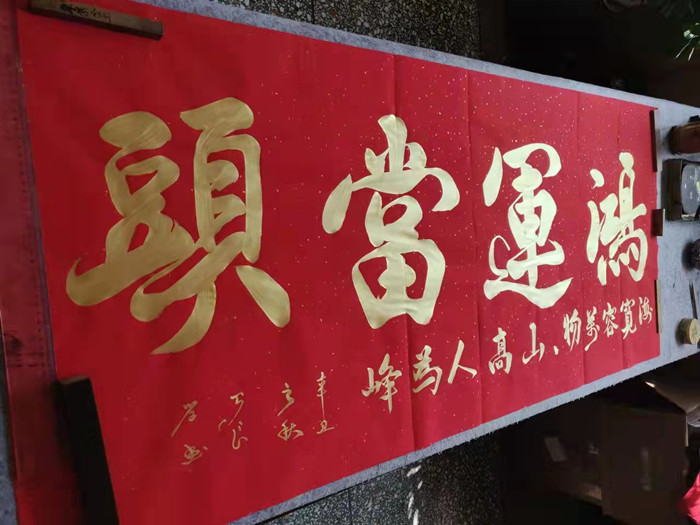 鴻運當頭
海寬容萬物、山高人為峰
辛丑
立秋
学书